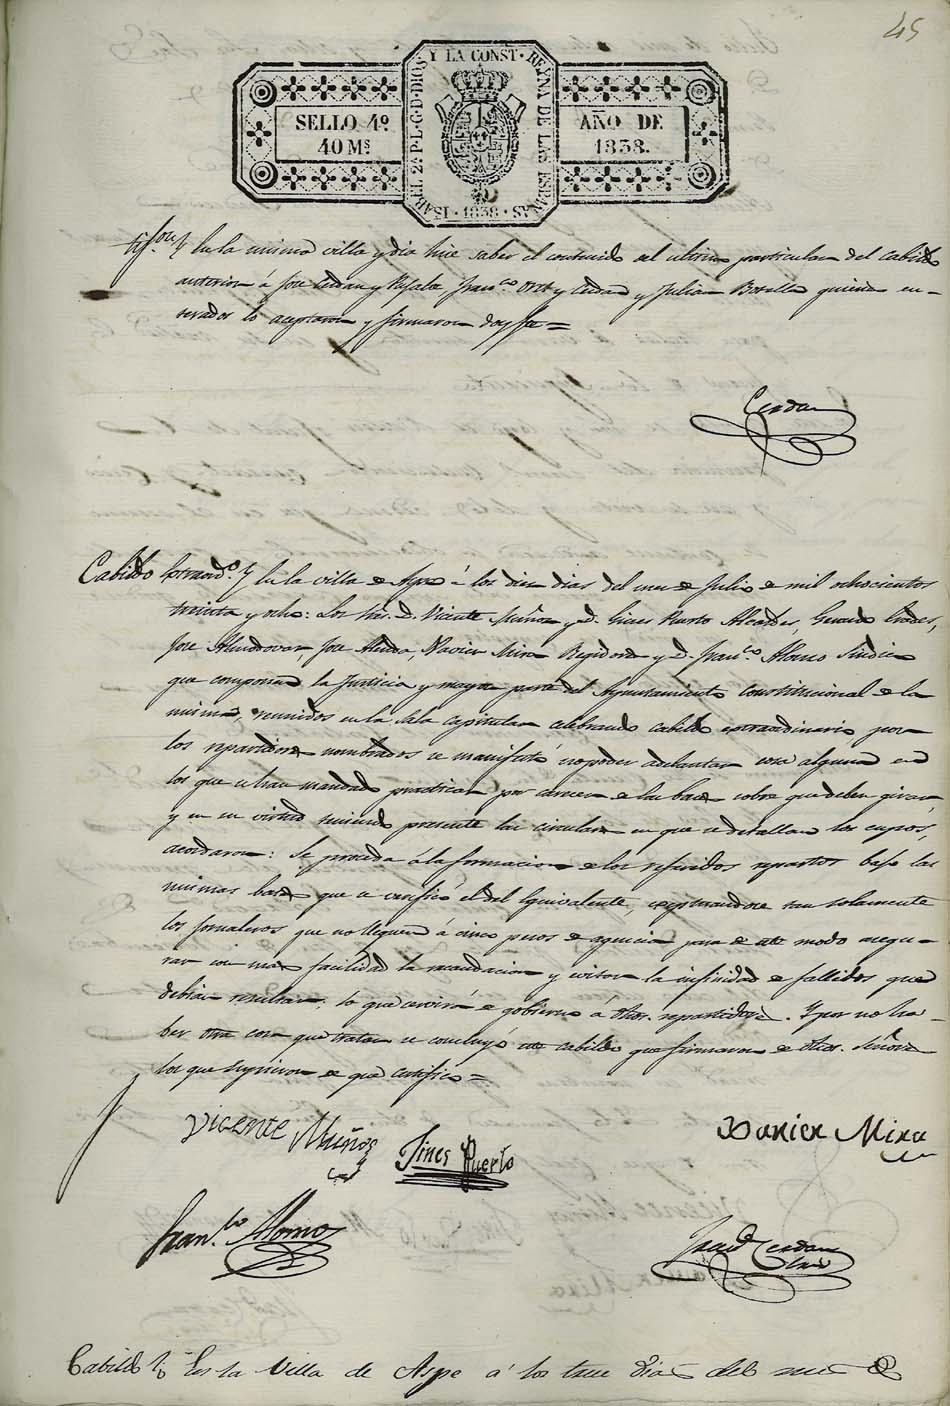 45
ISABEL 2ª P.L.G.D.DIOS Y LA CONST. REYNA DE LAS ESPAÑAS
SELLO 4º
40 Mˢ
AÑO DE
1838.
1838
En la misma villa y dia hice saber el contenido del ultimo particular del Cabildo
anterior á Jose Cerdan y Franᶜᵒ y Cerdan y Julian Botella quienes en-
terados lo aceptaron y firmaron doy fe =
Cerdan
Cabildo Extraordº. En la villa de Aspe á los diez dias del mes de Julio de mil ochocientos
treinta y ocho: Los Sres. D. Vicente Muñoz y D. Gines Puerto Alcaldes,
Jose Almodovar, Jose Xavier Mira Regidores y D. Franᶜᵒ Alonso Sindico
que componen la Justicia y mayor parte del Ayuntamiento Constitucional de la
misma, reunidos en la Sala capitular celebrando cabildo extraordinario por
los repartidores nombrados se manifestó no poder adelantar cosa alguna en
los que se han mandado practicar por carecer de las bases sobre que deben girar
y en su virtud teniendo presente las circulares en que se detallan los cupos,
acordaron: Se proceda á la formacion de los referidos repartos bajo las
mismas bases que se verificó el del Equivalente, exceptuandose tan solamente
los jornaleros que no lleguen á cinco pesos de agencia para de este modo asegu-
rar con mas facilidad la recaudacion y evitar la infinidad de fallidos que
debian resultar, lo que servirá de gobierno á dhos. repartidores. Y por no ha-
ber otra cosa que tratar se concluyó este cabildo que firmaron de dhos. Señores
los que supieron de que certifico =
Vicente Muñoz
Gines Puerto
Xavier Mira
Franᶜᵒ Alonso
Cerdan
Cabildo En la Villa de Aspe á los trece dias del mes de